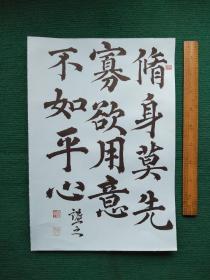 脩身莫先
寡欲用意
不如平心
謹之